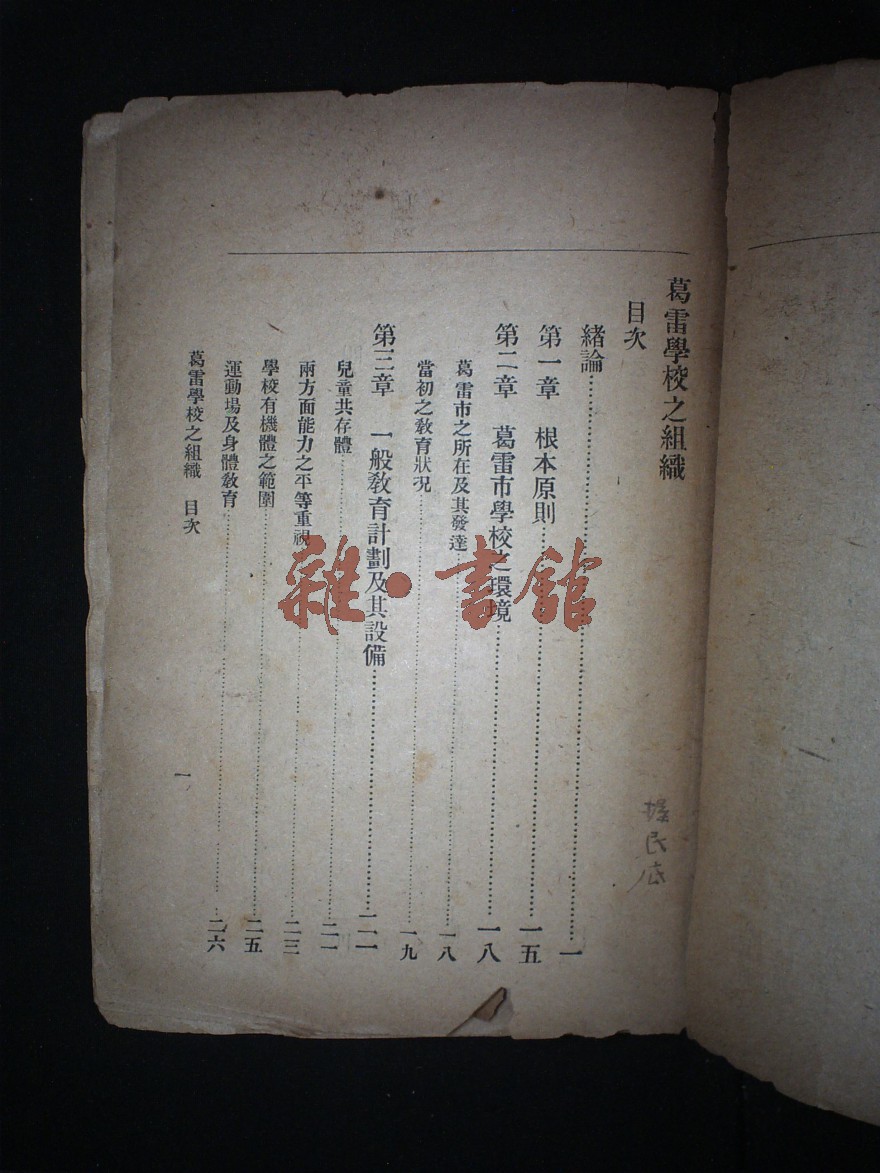 葛雷學校之組織
目次
緒論……一
第一章　根本原則……一五
第二章　葛雷市學校之環境……一八
葛雷市之所在及其發達……一八
當初之敎育狀况……一九
第三章　一般敎育計劃及其設備……二一
兒童共存體……二一
兩方面能力之平等重視……二三
學校有機體之範圍……二五
運動場及身體敎育……二六
葛雷學校之組織　目次
一
雜·書館